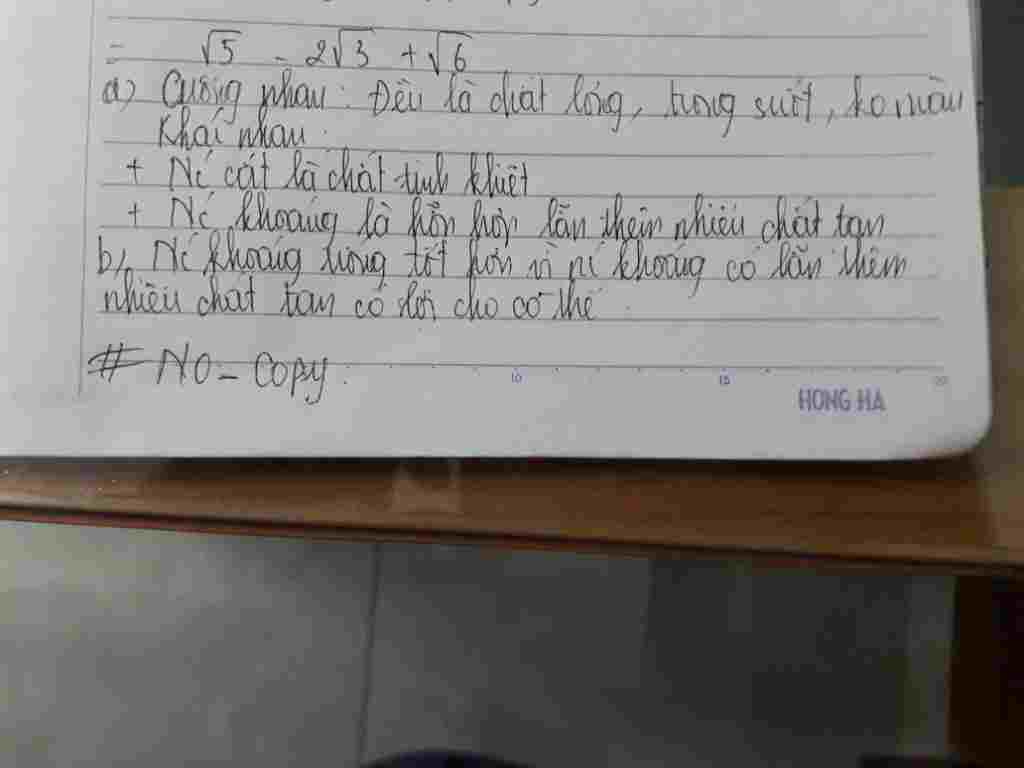 = √5 - 2√3 + √6
a) Giống nhau: Đều là chất lỏng, trong suốt, ko màu.
Khác nhau:
+ Nc cất là chất tinh khiết
+ Nc khoáng là hỗn hợp lẫn thêm nhiều chất tan
b) Nc khoáng uống tốt hơn vì nc khoáng có lẫn thêm
nhiều chất tan có lợi cho cơ thể.
# No - Copy.
10 15 20
HONG HA